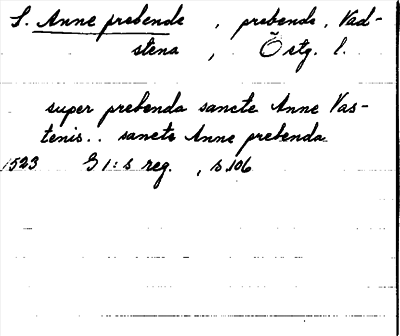 S. Anne prebende, prebende, Vad-
stena, Östg. l.
super prebenda sancte Anne Vas-
tenis.. sancte Anne prebenda
1523 G I:s reg., s. 106